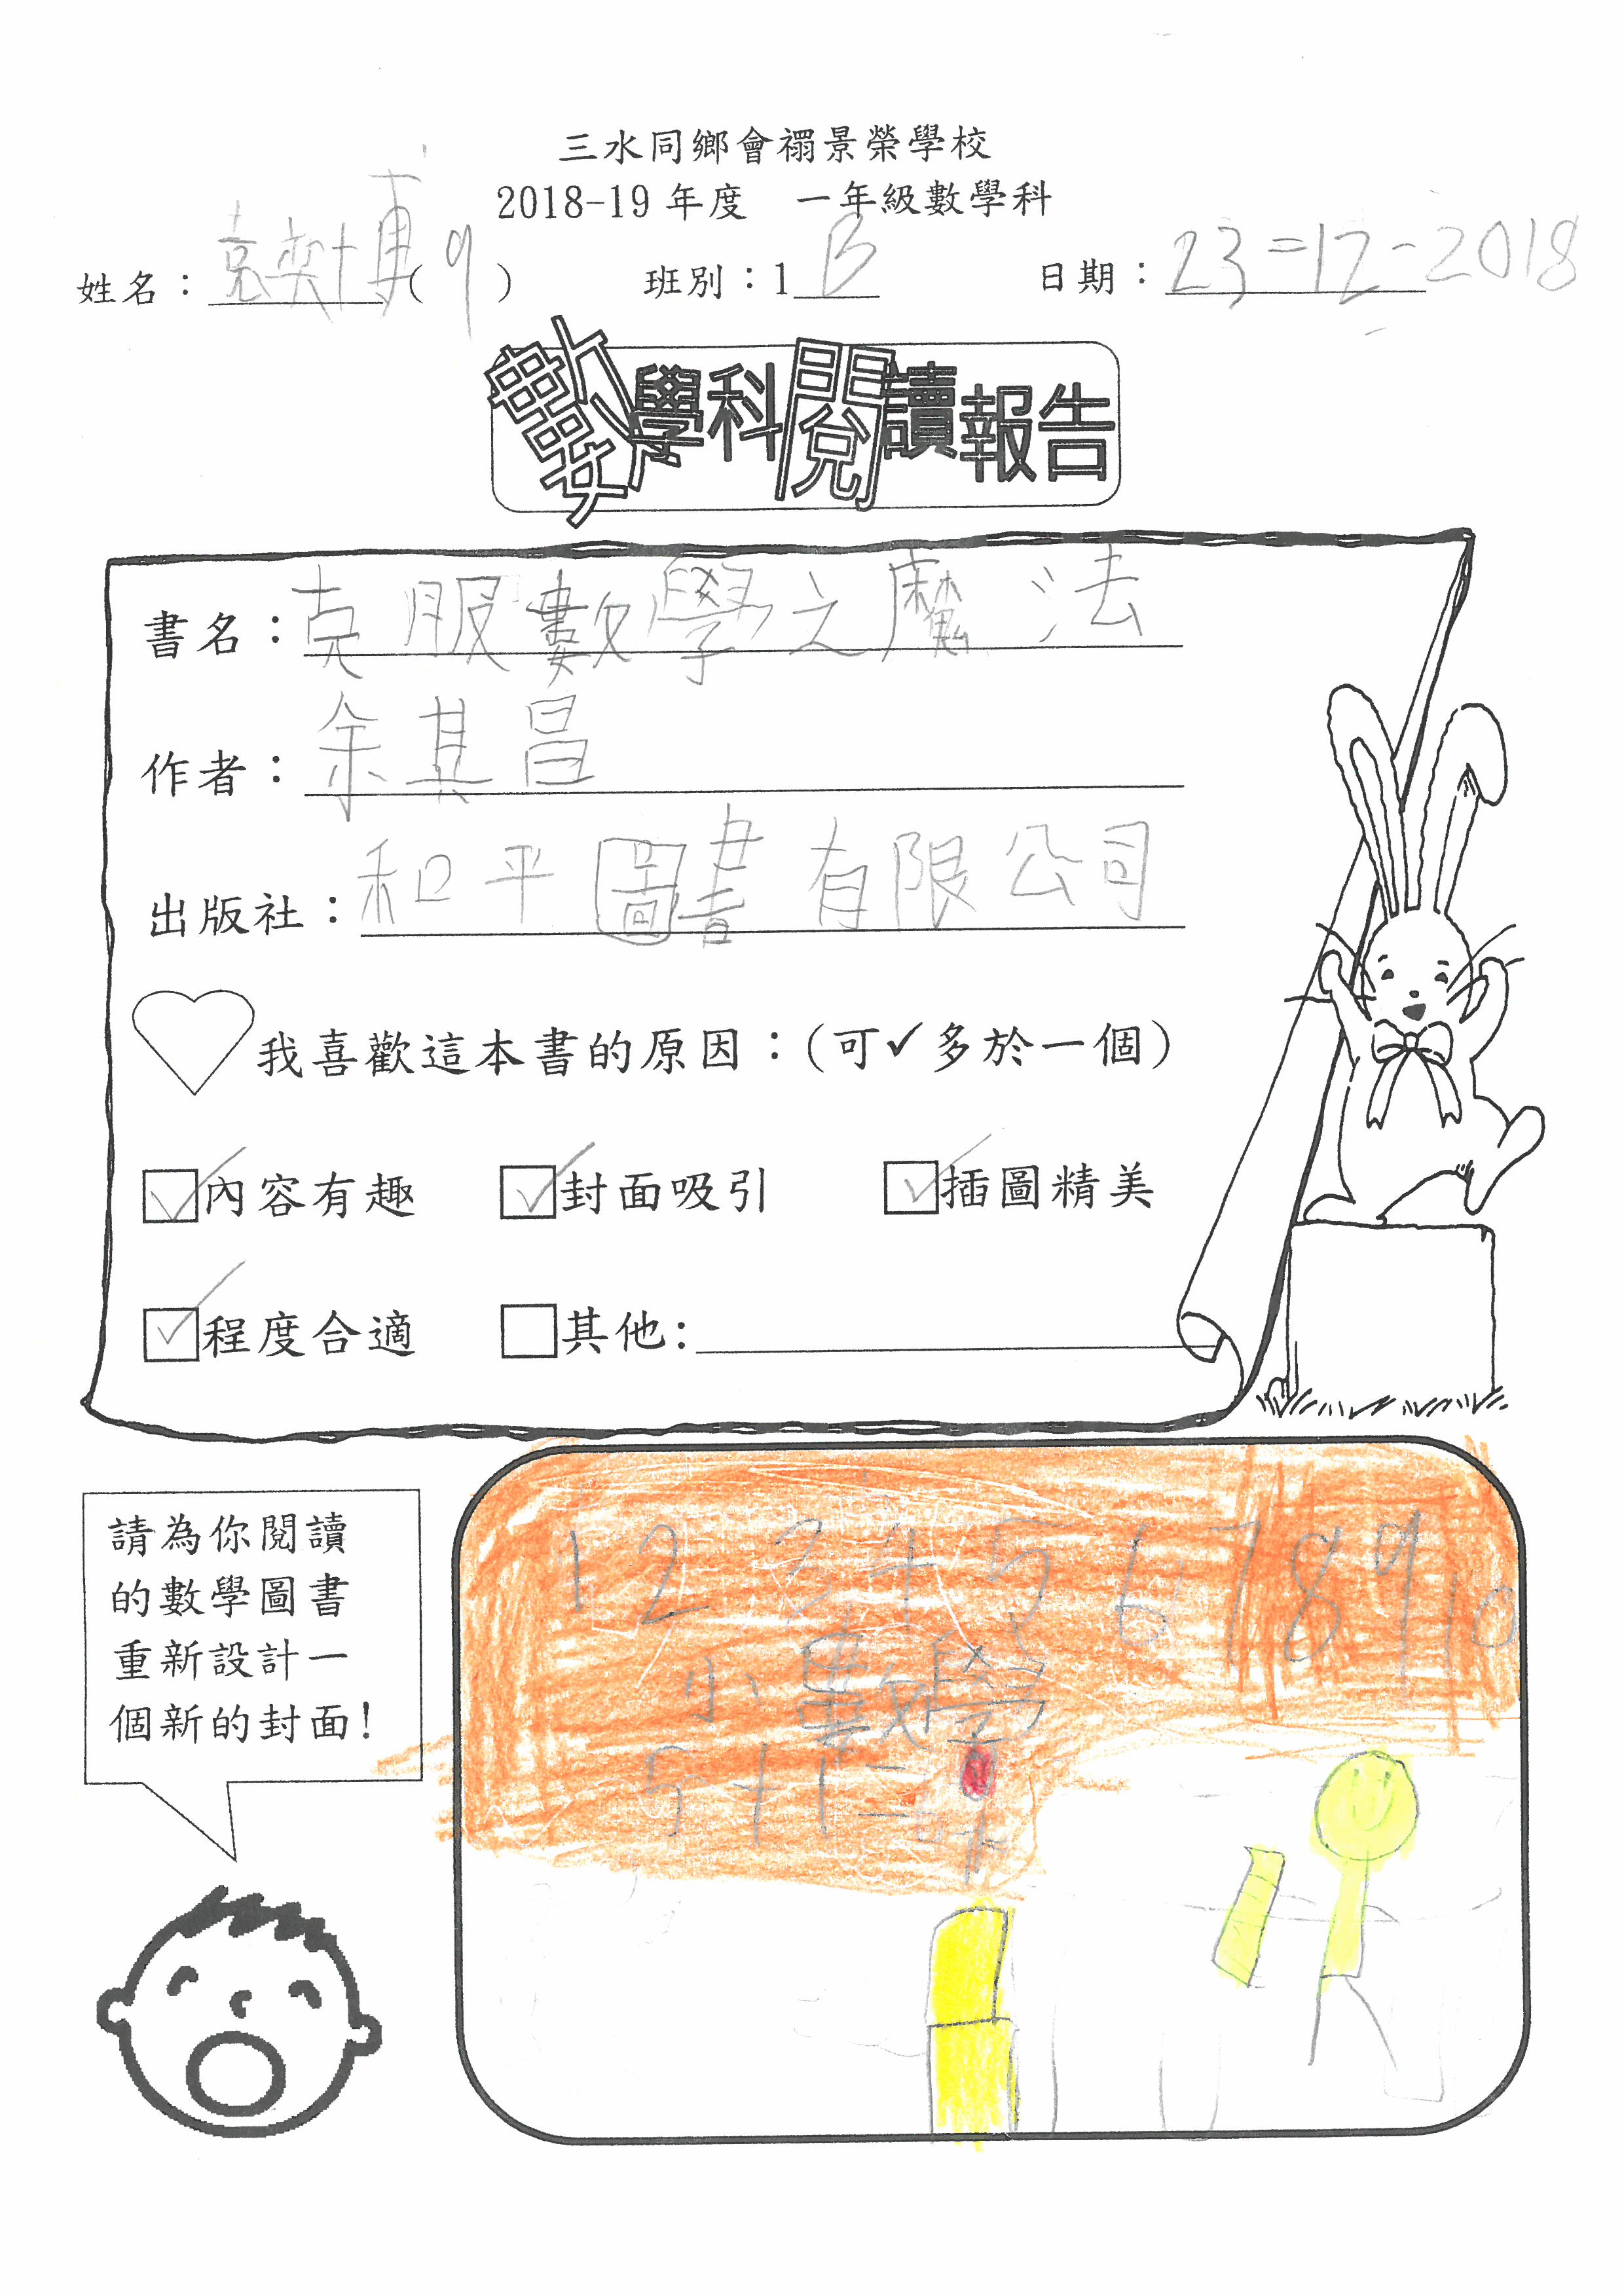 三水同鄉會禤景榮學校
2018-19 年度 一年級數學科
姓名：袁奕博(9) 班別：1B 日期：23-12-2018
數學科閱讀報告
書名：克服數學之魔法
作者：余其昌
出版社：和平圖書有限公司
我喜歡這本書的原因：(可✓多於一個)
☑內容有趣 ☑封面吸引 ☑插圖精美
☑程度合適 ☐其他:
請為你閱讀
的數學圖書
重新設計一
個新的封面!
1 2 3 4 5 6 7 8 9 10
小數學
5+1=